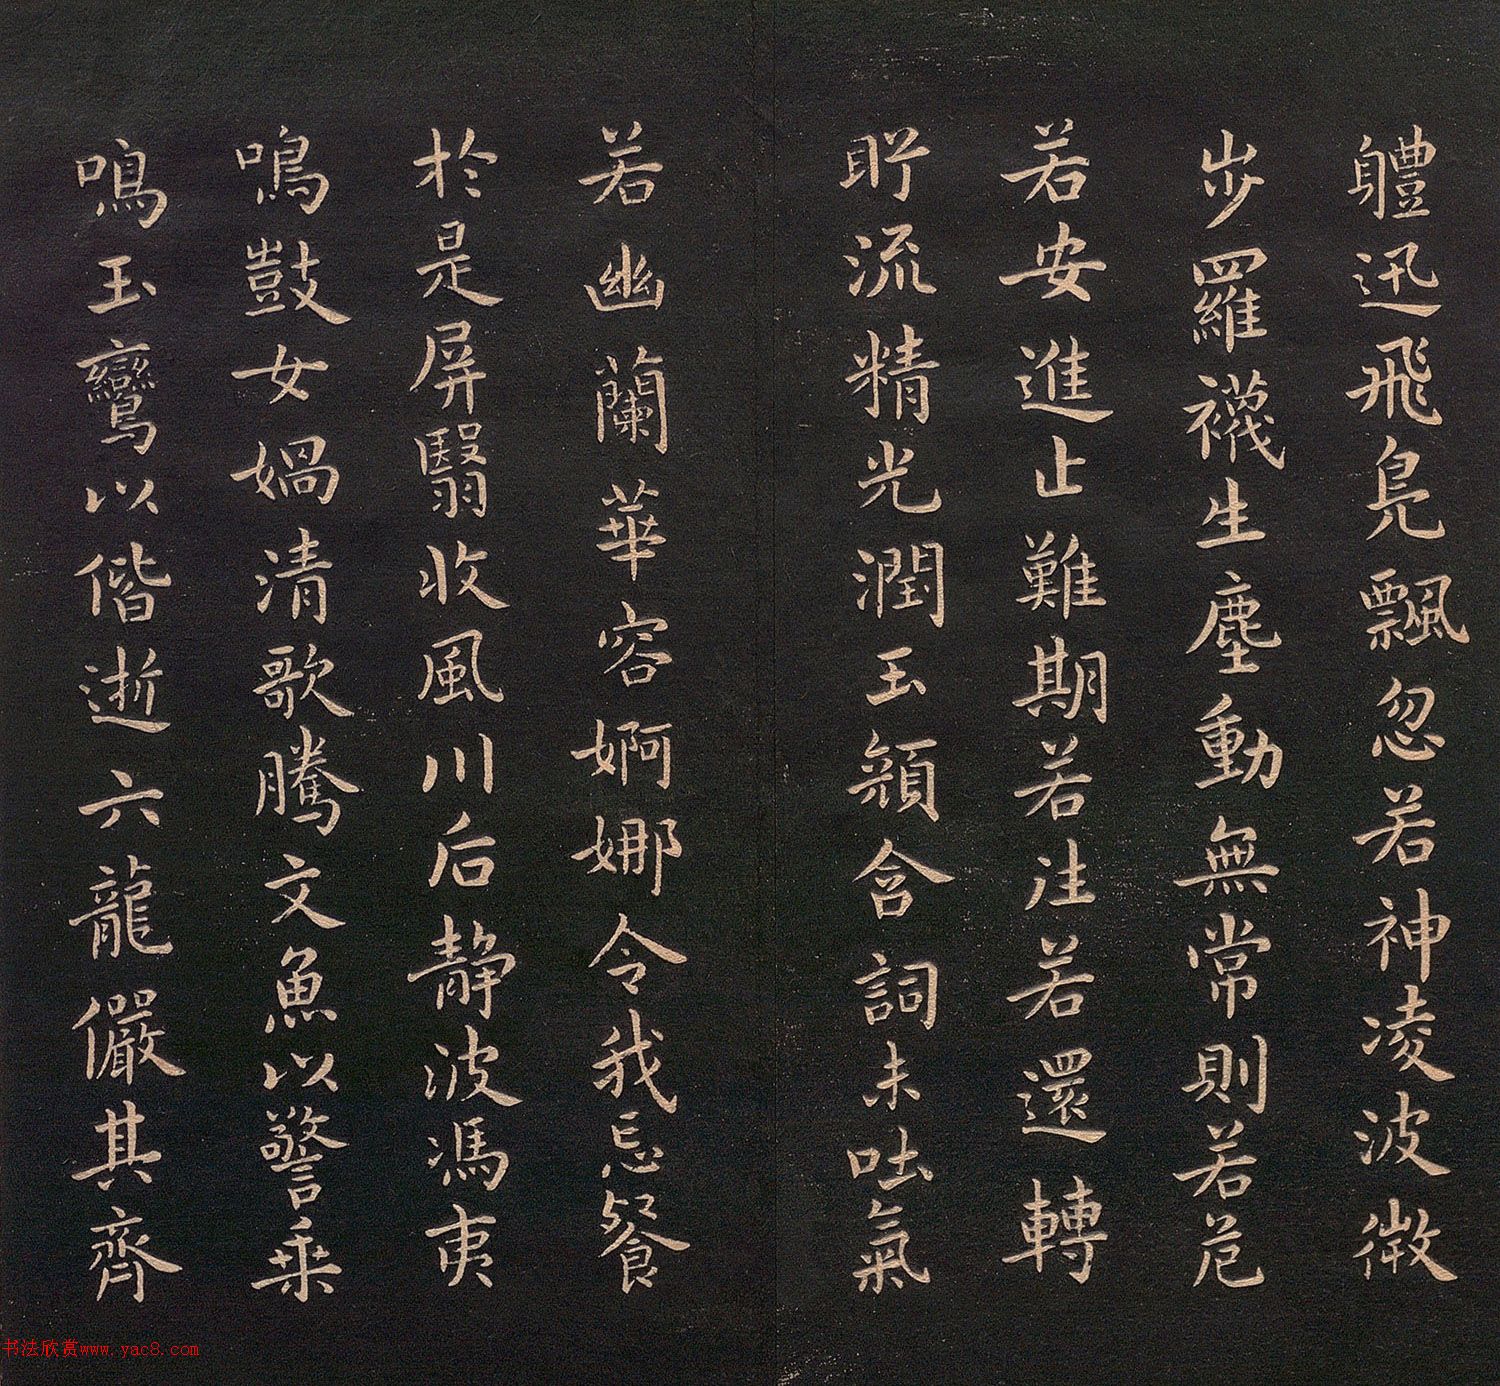 軆迅飛鳧飄忽若神凌波微
步羅襪生塵動無常則若危
若安進止難期若注若還轉
眄流精光潤玉顏含詞未吐氣
若幽蘭華容婀娜令我忘餐
於是屏翳收風川后静波馮夷
鳴鼓女媧清歌騰文魚以警乗
鳴玉鸞以偕逝六龍儼其齊
书法欣赏www.yac8.com